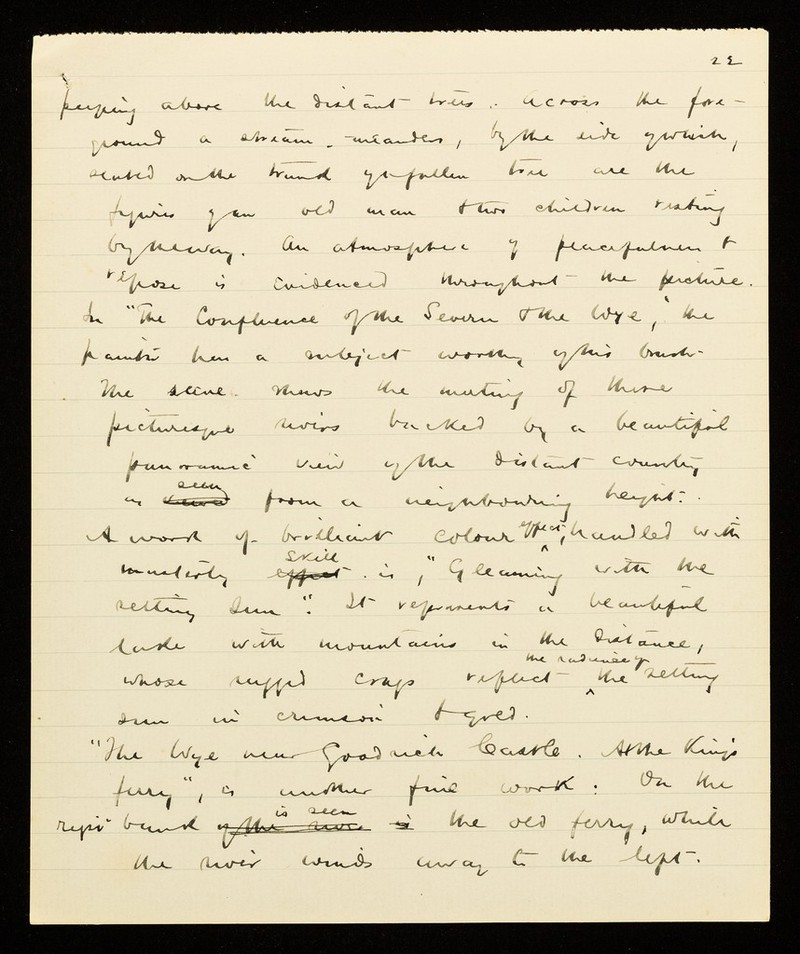 22
peeping above the distant trees. Across the fore-
ground a stream meanders, by the side of which,
seated on the trunk of a fallen tree are the
figures of an old man & two children resting
by the way. An atmosphere of peacefulness &
repose is evidenced throughout the picture.
In "The Confluence of the Severn & the Wye," the
painter has a subject worthy of his brush.
The scene shows the meeting of these
picturesque rivers backed by a beautiful
panoramic view of the distant country
seen
as viewed from a neighbouring height.
effect,
A work of brilliant colour ^ handled with
skill
masterly effect is, "Gleaming with the
setting Sun". It represents a beautiful
lake with mountains in the distance,
the radiance of
whose rugged crags reflect ^ the setting
sun in crimson & gold.
"The Wye near Goodrich Castle. At the King's
ferry", is another fine work. On the
is seen
right bank of the river is the old ferry, while
the river winds away to the left.